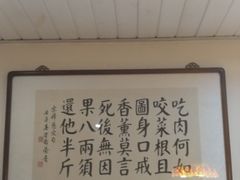 吃肉何如
咬菜根且
圖身口戒
香薰莫言
死後無因
果八兩須
還他半斤